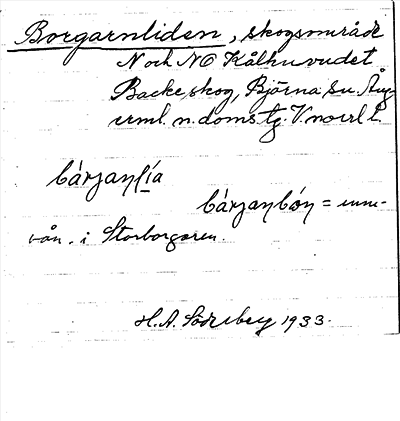 Borgarnliden, skogsområde
N och NO Kålhuvudet
Backe skog, Björna sn. Ång-
erml. n. doms tg. V.norrl l.
bárjanlía
bárjanbón = inne-
vån. i Storborgaren.
H.A. Söderberg 1933.